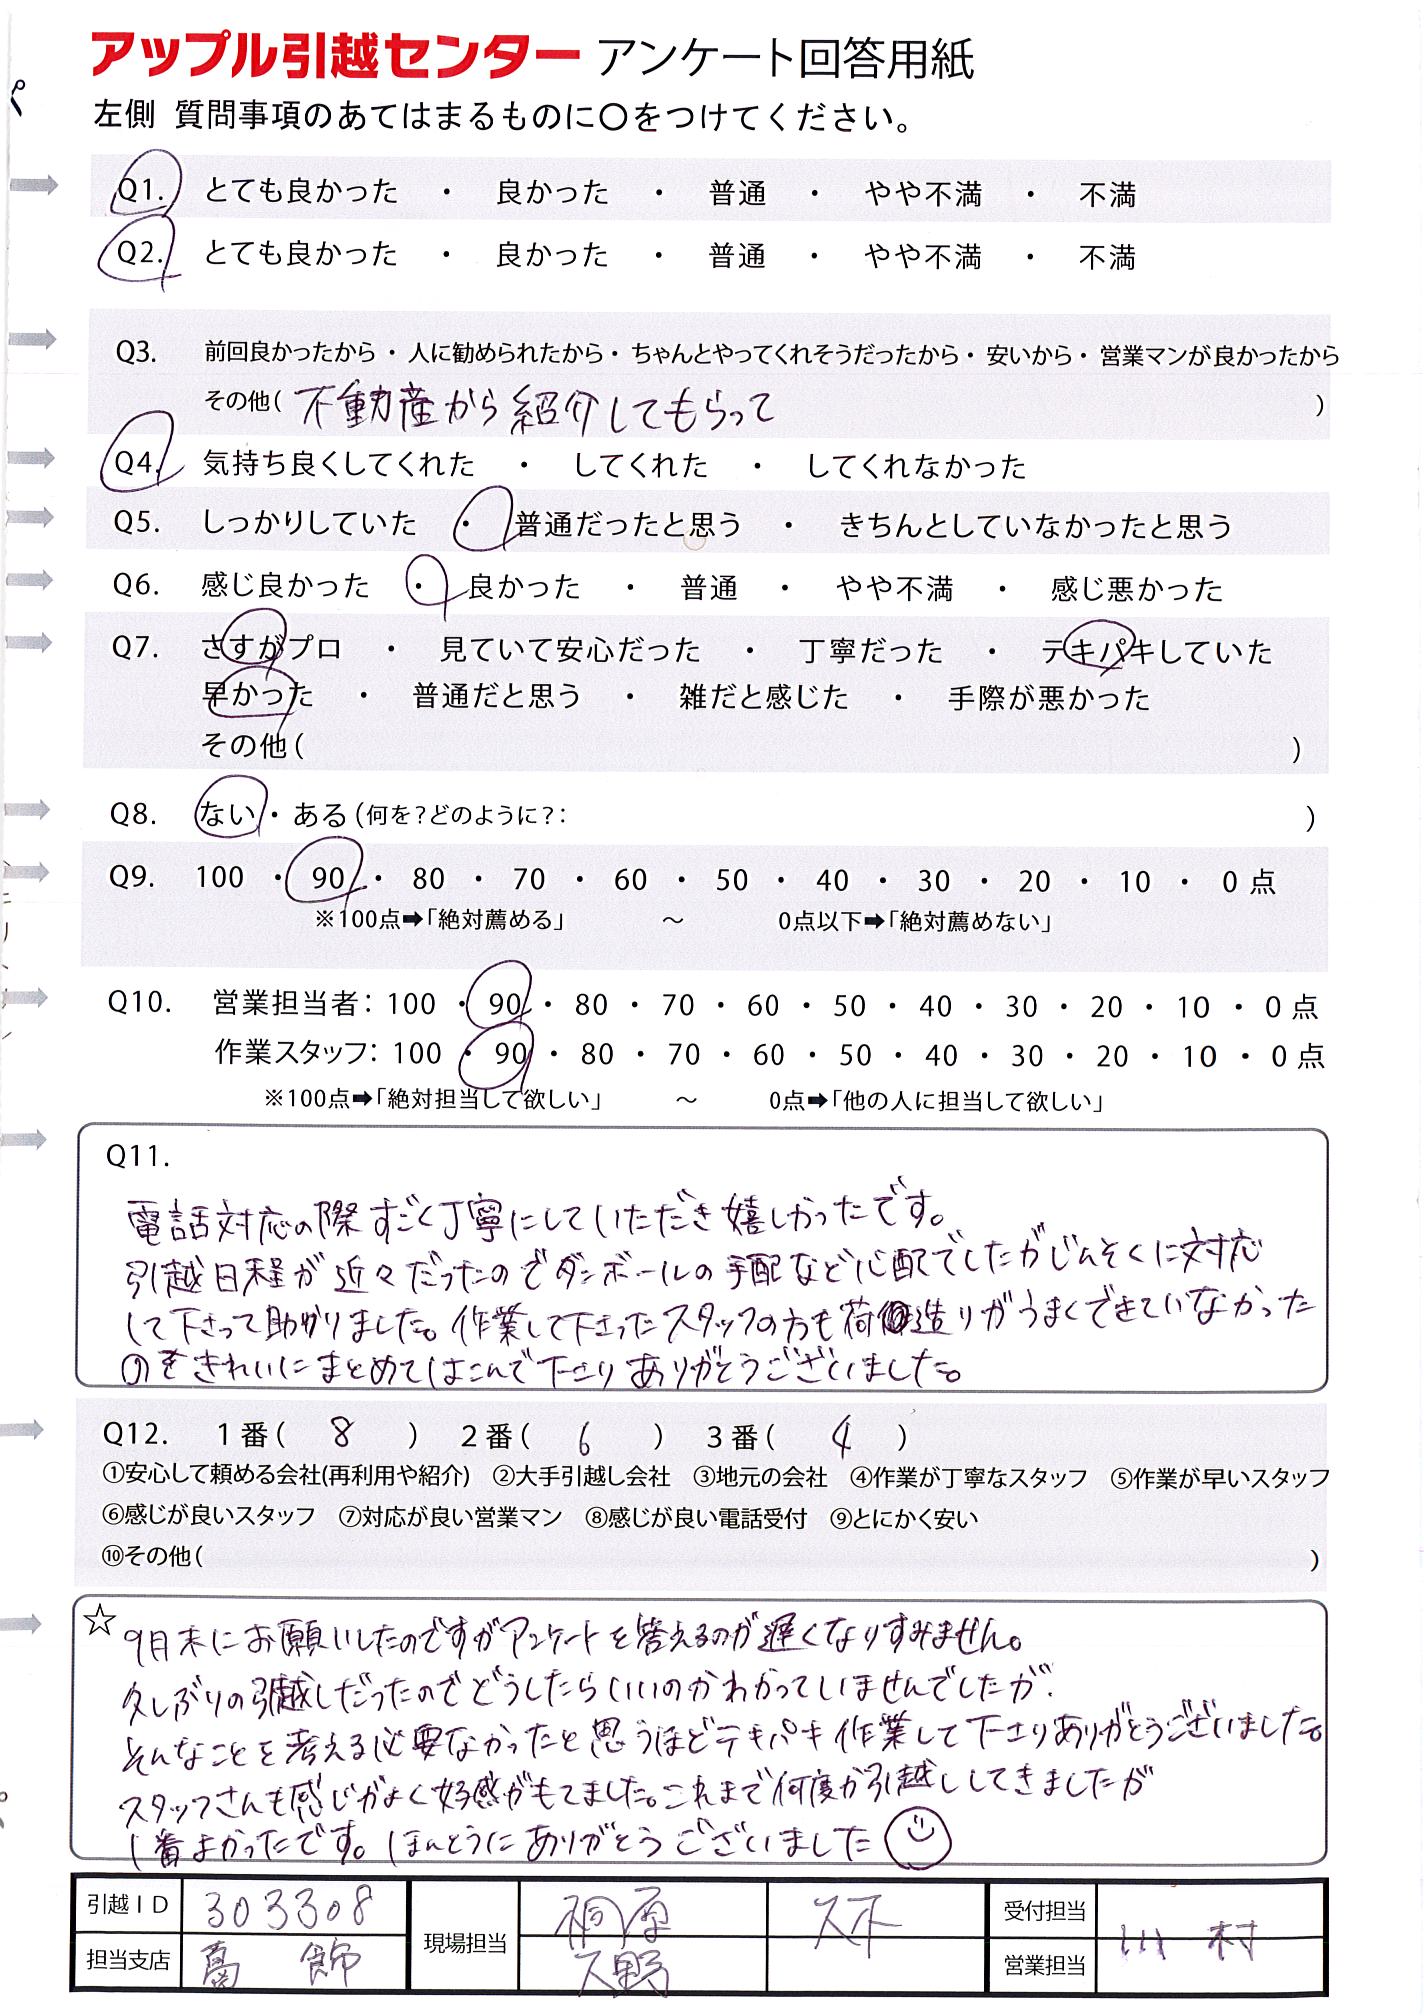 アップル引越センター アンケート回答用紙
左側 質問事項のあてはまるものに〇をつけてください。
Q1. とても良かった ・ 良かった ・ 普通 ・ やや不満 ・ 不満
Q2. とても良かった ・ 良かった ・ 普通 ・ やや不満 ・ 不満
Q3. 前回良かったから・人に勧められたから・ちゃんとやってくれそうだったから・安いから・営業マンが良かったから
その他( 不動産から紹介してもらって )
Q4. 気持ち良くしてくれた ・ してくれた ・ してくれなかった
Q5. しっかりしていた ・ 普通だったと思う ・ きちんとしていなかったと思う
Q6. 感じ良かった ・ 良かった ・ 普通 ・ やや不満 ・ 感じ悪かった
Q7. さすがプロ ・ 見ていて安心だった ・ 丁寧だった ・ テキパキしていた
早かった ・ 普通だと思う ・ 雑だと感じた ・ 手際が悪かった
その他( )
Q8. ない・ある(何を?どのように?: )
Q9. 100 ・ 90 ・ 80 ・ 70 ・ 60 ・ 50 ・ 40 ・ 30 ・ 20 ・ 10 ・ 0 点
※100点➡「絶対薦める」 ～ 0点以下➡「絶対薦めない」
Q10. 営業担当者: 100 ・ 90 ・ 80 ・ 70 ・ 60 ・ 50 ・ 40 ・ 30 ・ 20 ・ 10 ・ 0 点
作業スタッフ: 100 ・ 90 ・ 80 ・ 70 ・ 60 ・ 50 ・ 40 ・ 30 ・ 20 ・ 10 ・ 0 点
※100点➡「絶対担当して欲しい」 ～ 0点➡「他の人に担当して欲しい」
Q11.
電話対応の際すごく丁寧にしていただき嬉しかったです。
引越日程が近々だったのでダンボールの手配など心配でしたがじんそくに対応
して下さって助かりました。作業して下さったスタッフの方も荷造りがうまくできていなかった
のをきれいにまとめてはこんで下さりありがとうございました。
Q12. 1番( 8 ) 2番( 6 ) 3番( 4 )
①安心して頼める会社(再利用や紹介) ②大手引越し会社 ③地元の会社 ④作業が丁寧なスタッフ ⑤作業が早いスタッフ
⑥感じが良いスタッフ ⑦対応が良い営業マン ⑧感じが良い電話受付 ⑨とにかく安い
⑩その他( )
☆ 9月末にお願いしたのですがアンケートを答えるのが遅くなりすみません。
久しぶりの引越しだったのでどうしたらいいのかわかっていませんでしたが、
そんなことを考える必要なかったと思うほどテキパキ作業して下さりありがとうございました。
スタッフさんも感じがよく好感がもてました。これまで何度か引越ししてきましたが
1番よかったです。ほんとうにありがとうございました
引越ID 303308 現場担当 桐原 受付担当 川村
担当支店 葛飾 久野 営業担当